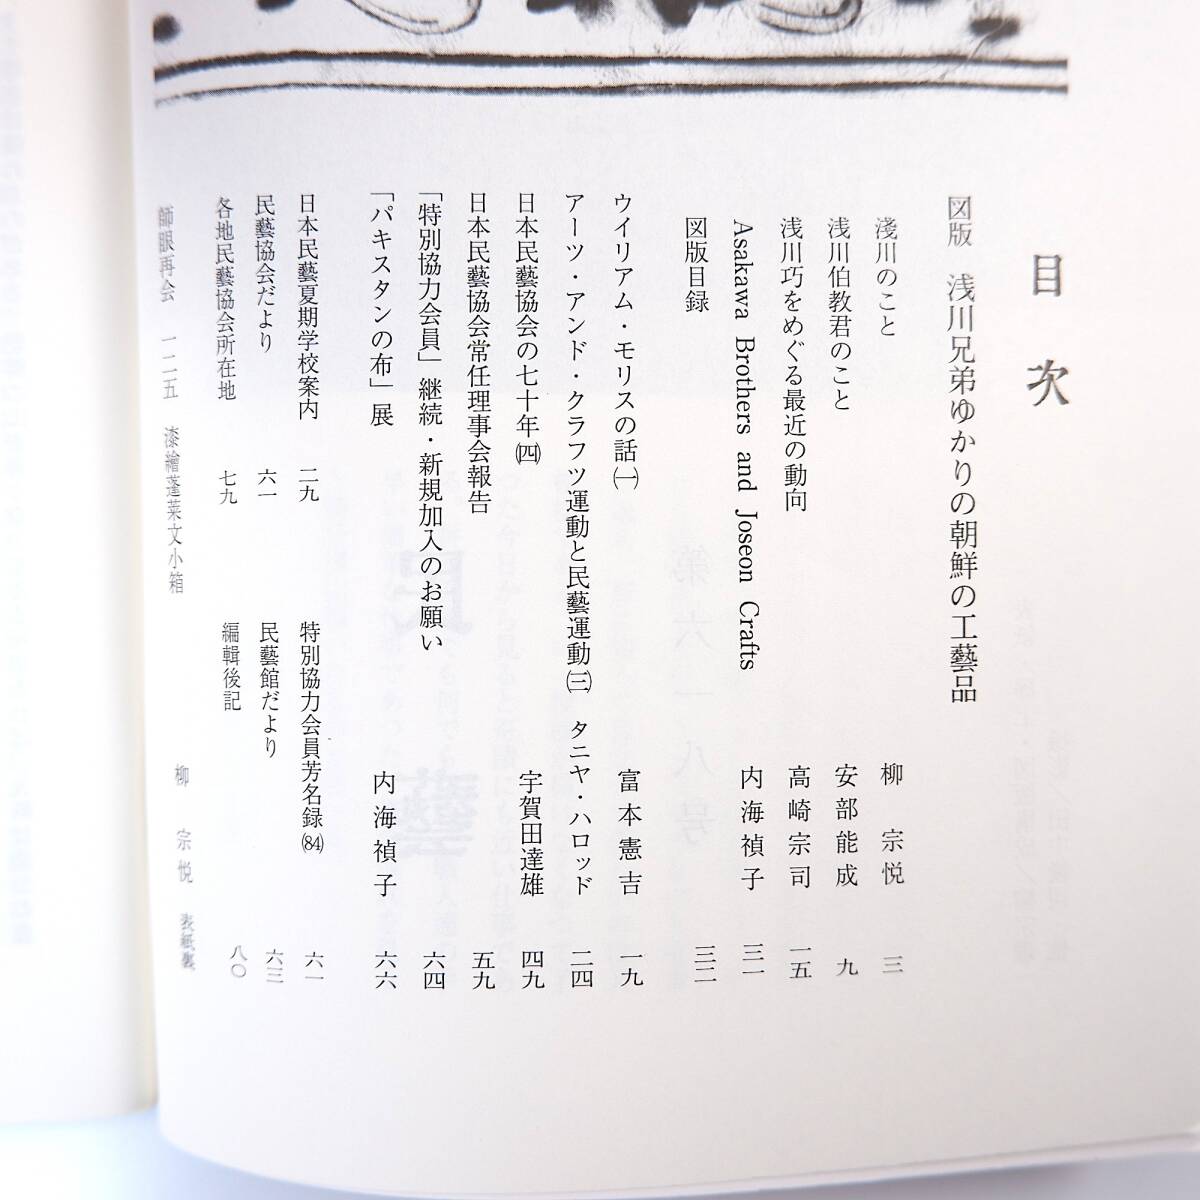 目次
図版 浅川兄弟ゆかりの朝鮮の工藝品
淺川のこと 柳宗悦 三
浅川伯教君のこと 安部能成 九
浅川巧をめぐる最近の動向 高崎宗司 一五
Asakawa Brothers and Joseon Crafts 内海禎子 三一
図版目録 三二
ウイリアム・モリスの話㈠ 富本憲吉 一九
アーツ・アンド・クラフツ運動と民藝運動㈢ タニヤ・ハロッド 二四
日本民藝協会の七十年㈣ 宇賀田達雄 四九
日本民藝協会常任理事会報告 五九
「特別協力会員」継続・新規加入のお願い 六四
「パキスタンの布」展 内海禎子 六六
日本民藝夏期学校案内 二九 特別協力会員芳名録(84) 六一
民藝協会だより 六一 民藝館だより 六三
各地民藝協会所在地 七九 編輯後記 八〇
師眼再会 一二五 漆繪蓬莱文小箱 柳宗悦 表紙裏
第六一八号
民藝